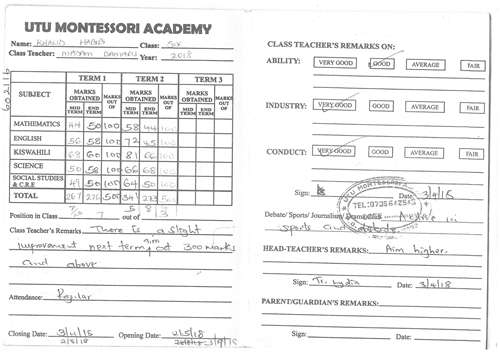 UTU MONTESSORI ACADEMY
Name: KHALID HABIB Class: SIX
Class Teacher: MADAM DAMARIS Year: 2018
TERM 1 TERM 2 TERM 3
SUBJECT MARKS OBTAINED MARKS OUT OF MARKS OBTAINED MARKS OUT OF MARKS OBTAINED MARKS OUT OF
MID TERM END TERM MID TERM END TERM MID TERM END TERM
MATHEMATICS 44 50 100 58 44 100
ENGLISH 56 58 100 72 45 100
KISWAHILI 68 60 100 81 66 100
SCIENCE 50 58 100 66 68 100
SOCIAL STUDIES & C.R.E 49 50 100 64 50 100
TOTAL 267 276 500 341 273 500
Position in Class 7 out of
Class Teacher's Remarks There is a slight
improvement next term aim at 300 marks
and above
Attendance: Regular
Closing Date: 3/4/18 Opening Date: 2/5/18
2/8/18 3/9/18
CLASS TEACHER'S REMARKS ON:
ABILITY: VERY GOOD GOOD AVERAGE FAIR
INDUSTRY: VERY GOOD GOOD AVERAGE FAIR
CONDUCT: VERY GOOD GOOD AVERAGE FAIR
Sign: Date: 3/4/18
UTU MONTESSORI
TEL:0736642515
Debate/ Sports/ Journalism/ Drama Active in
sports and
HEAD-TEACHER'S REMARKS: Aim higher.
Sign: Tr. Lydia Date: 3/4/18
PARENT/GUARDIAN'S REMARKS:
Sign: Date: